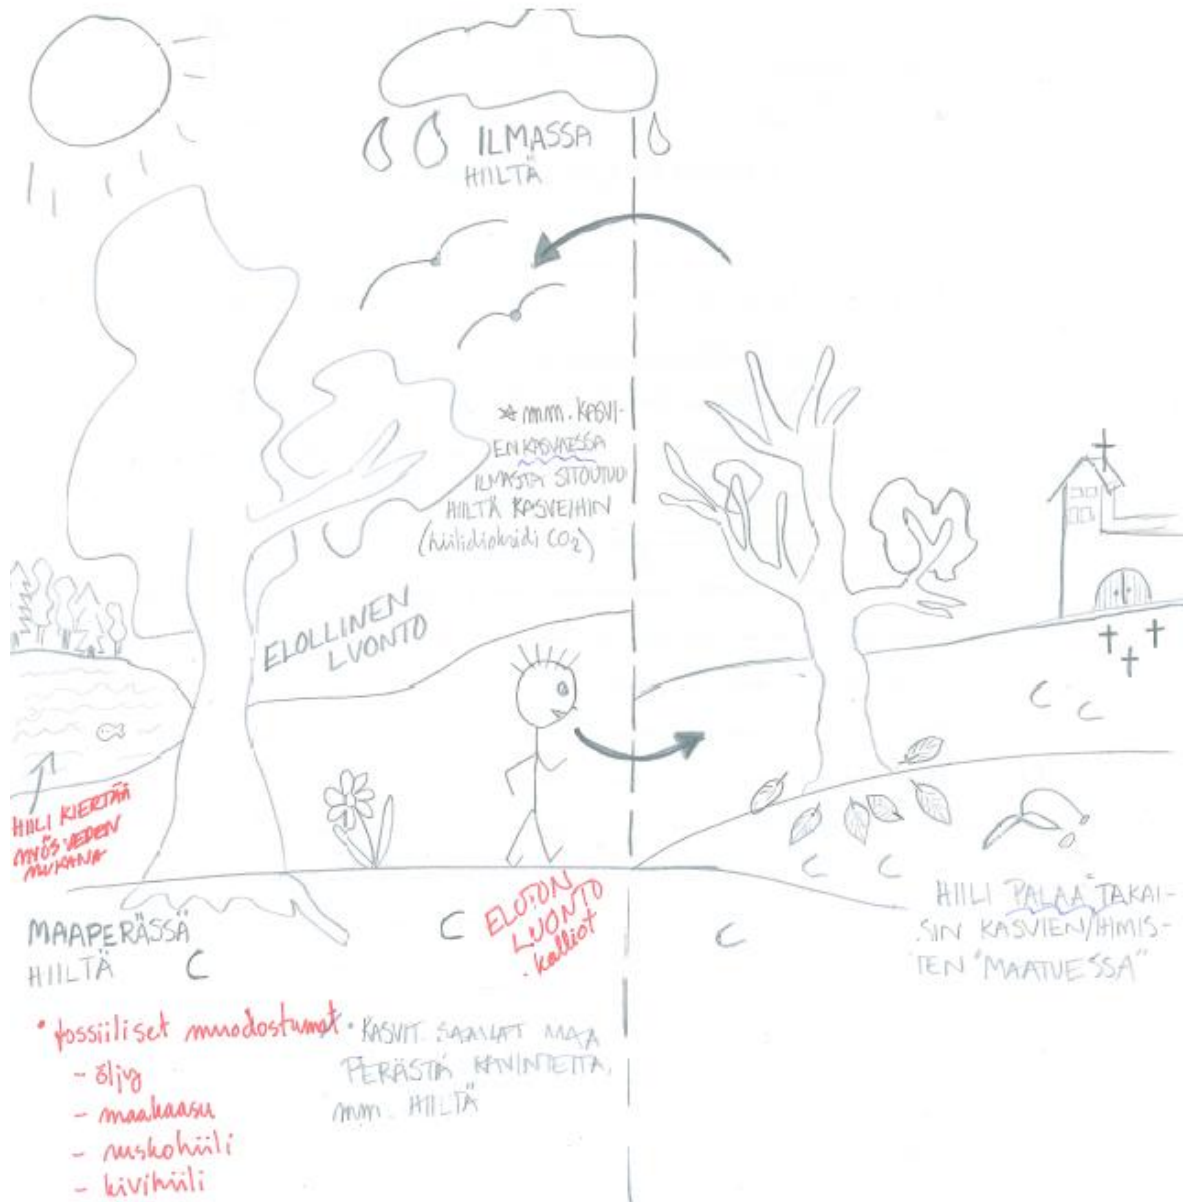 ILMASSA
HIILTÄ
* mm. KASVI-
EN KASVAESSA
ILMASTA SITOUTUU
HIILTÄ KASVEIHIN
(hiilidioksidi CO2)
ELOLLINEN
LUONTO
HIILI KIERTÄÄ
MYÖS VEDEN
MUKANA
C C
C C
MAAPERÄSSÄ
HIILTÄ C
C
ELOTON
LUONTO
. kalliot
C
HIILI "PALAA" TAKAI-
SIN KASVIEN/IHMIS-
TEN "MAATUESSA"
• fossiiliset muodostumat
- öljy
- maakaasu
- ruskohiili
- kivihiili
• KASVIT SAAVAT MAA
PERÄSTÄ RAVINTETTA,
mm. HIILTÄ